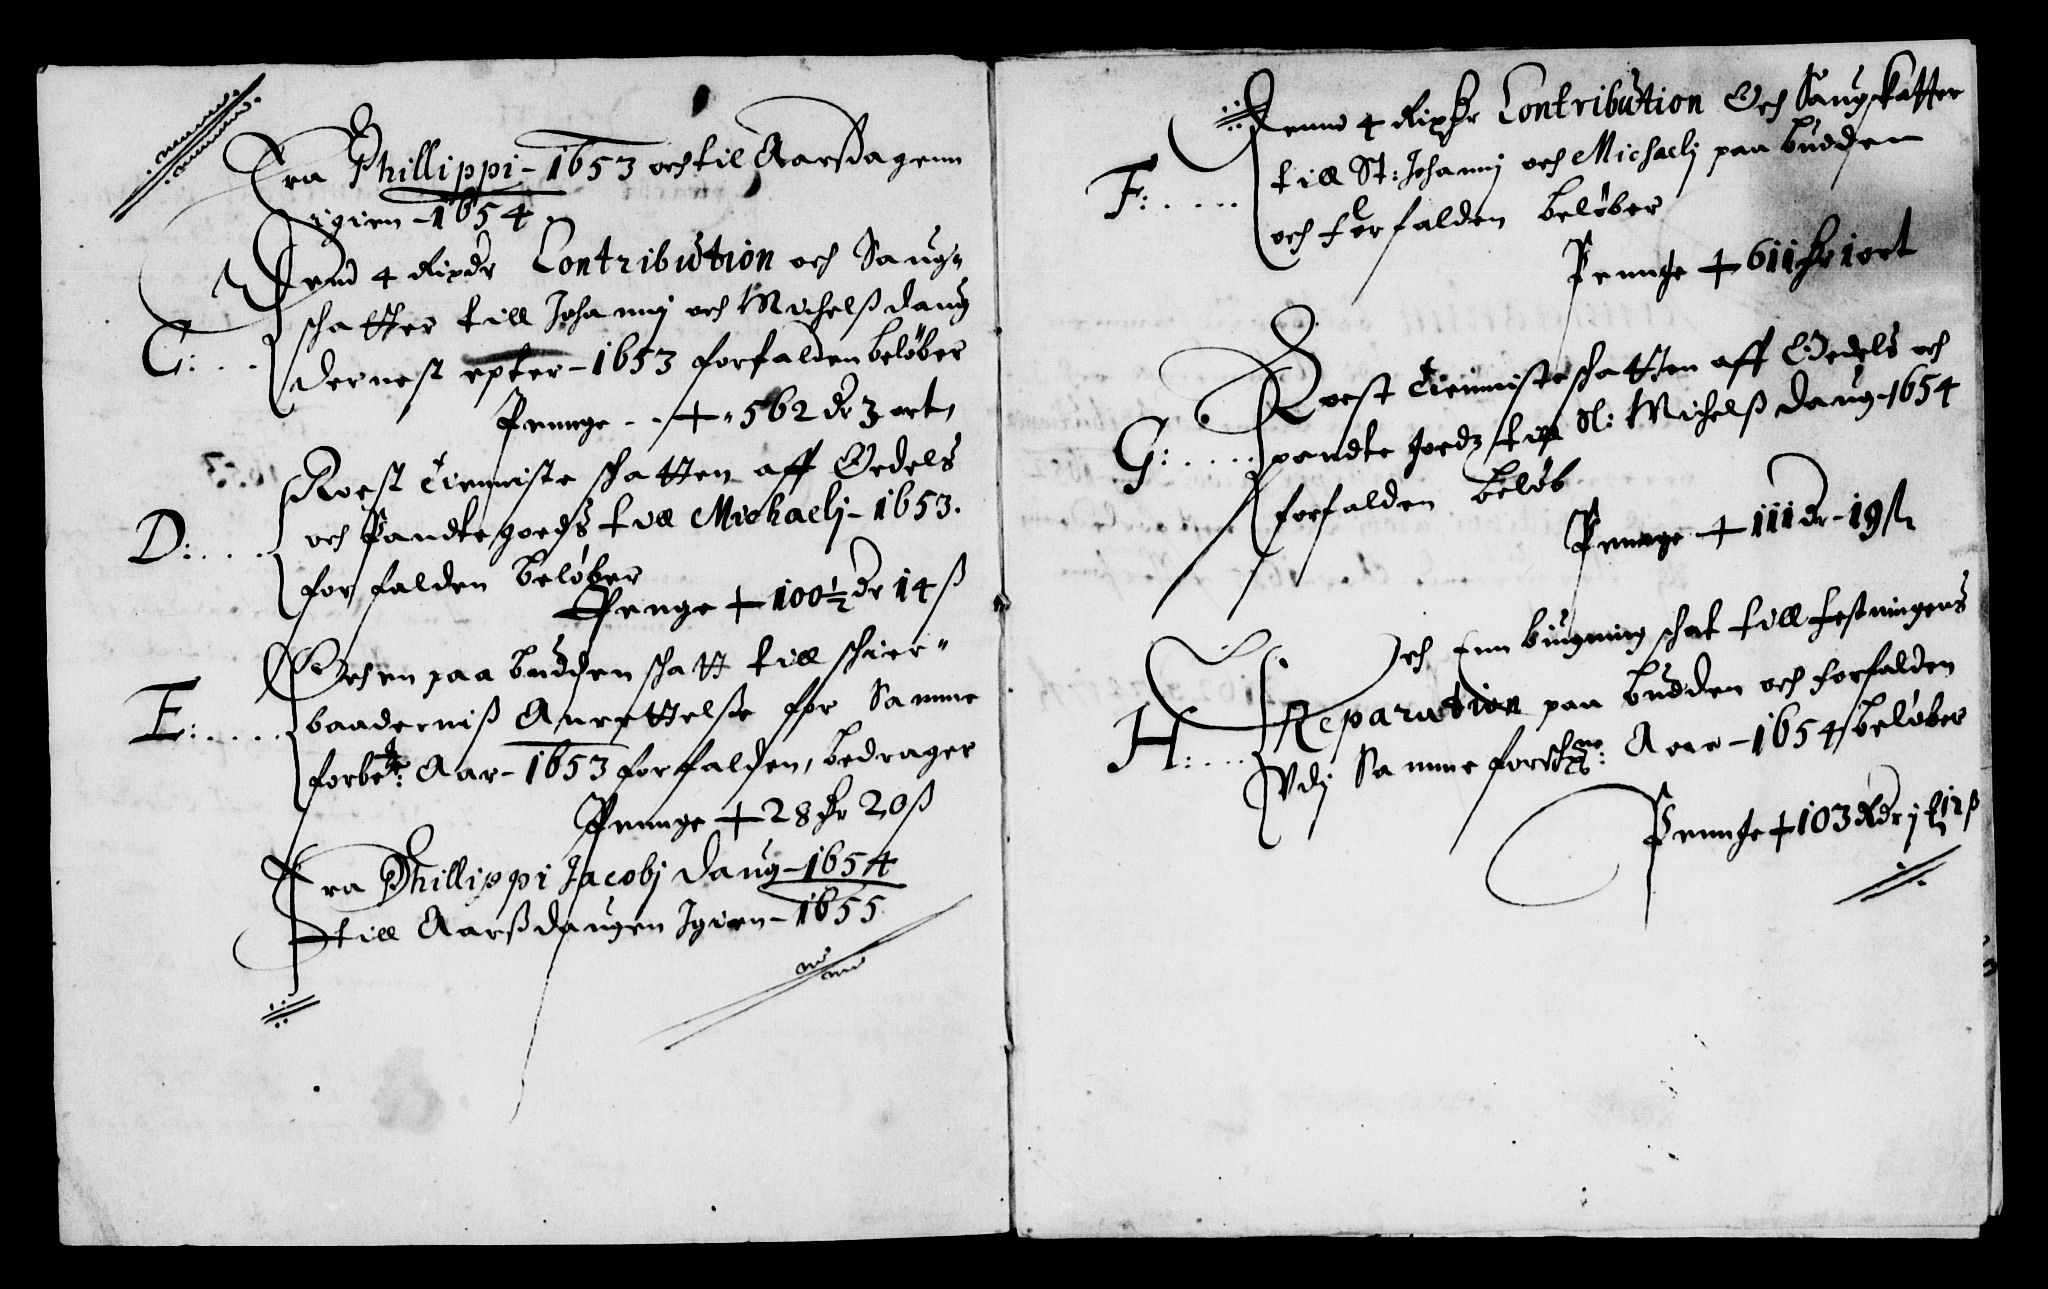 Fra Phillippi - 1653 och til Aarsdagenn
igien - 1654.
Dend 4 Rixdr Contribution och Saug„
schatter till Johannj och Michelß daug
C: . . . dernest epter - 1653 forfalden beløber
Penge - . + „ 562 dr 3 ort,
Roest tienniste schatten aff Oedels
D: . . . . och Pandte goedß till Michaelj - 1653.
forfalden beløber
Penge + 100½ dr 14 ß
Och en paa budden schatt till schier„
E: . . . . baaderniß Anrettelse for Samme
forbete: Aar - 1653 forfalden, bedrager
Pennge + 28 dr 20 ß
Fra Phillippi Jacobj daug - 1654
till Aarßdaugen Igien - 1655
Denne 4 Rixdr Contribution Och Saugskatter
F: . . . . . till St: Johannj och Michaelj paa budden
och forfalden beløber
Pennge + 611 dr 1 ort
Roest tiennisteschatten aff Oedels och
G: . . . . . pandte goedz till St: Michelß daug - 1654
forfalden beløb
Pennge + 111 dr - 19 ß
Och Enn biugning schat till festningens
Reparation paa budden och forfalden
H: . . . . Vdj Samme forschne: Aar - 1654 beløber
Pennge + 103 Rdr j 12 ß